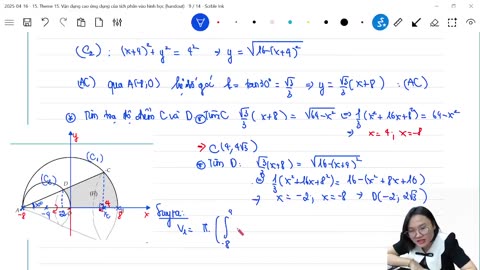 2025-04-16 - 15: Theme 15. Vận dụng cao ứng dụng của tích phân vào hình học (handout) 9 / 14 - Scrble Ink
(C₂) : (x+4)² + y² = 4² → y = √(16-(x+4)²)
(AC) qua A(-8;0) hệ số góc k = tan30° = √3/3 ⇒ y = √3/3 (x+8) : (AC)
Tìm tọa độ điểm C và D
Tìm C √3/3 (x+8) = √(64-x²) ⇔ 1/3 (x²+16x+8²) = 64-x²
→ x=4, x=-8
→ C(4,4√3)
Tìm D: √3/3 (x+8) = √(16-(x+4)²)
⇔ 1/3 (x²+16x+8²) = 16-(x²+8x+16)
→ x=-2, x=-8 → D(-2, 2√3)
y
(C₁)
C
(C₂)
D
(H)
30°
-8 -4 -2 4 8 x
Suy ra:
V₁ = π. (∫ 4 -8